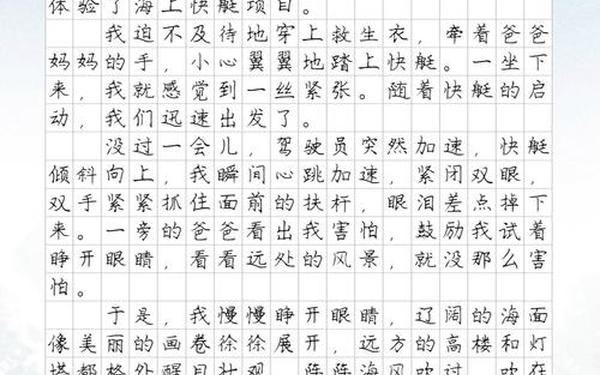 体验了海上快艇项目。
我迫不及待地穿上救生衣，牵着爸爸
妈妈的手，小心翼翼地踏上快艇。一坐下
来，我就感觉到一丝紧张。随着快艇的启
动，我们迅速出发了。
没过一会儿，驾驶员突然加速，快艇
倾斜向上，我瞬间心跳加速，紧闭双眼，
双手紧紧抓住面前的扶杆，眼泪差点掉下
来。一旁的爸爸看出我害怕，鼓励我试着
睁开眼睛，看看远处的风景，就没那么害
怕。
于是，我慢慢睁开眼睛，辽阔的海面
像美丽的画卷徐徐展开，远方的高楼和灯
塔都格外醒目壮观。阵阵海风吹过，吹在